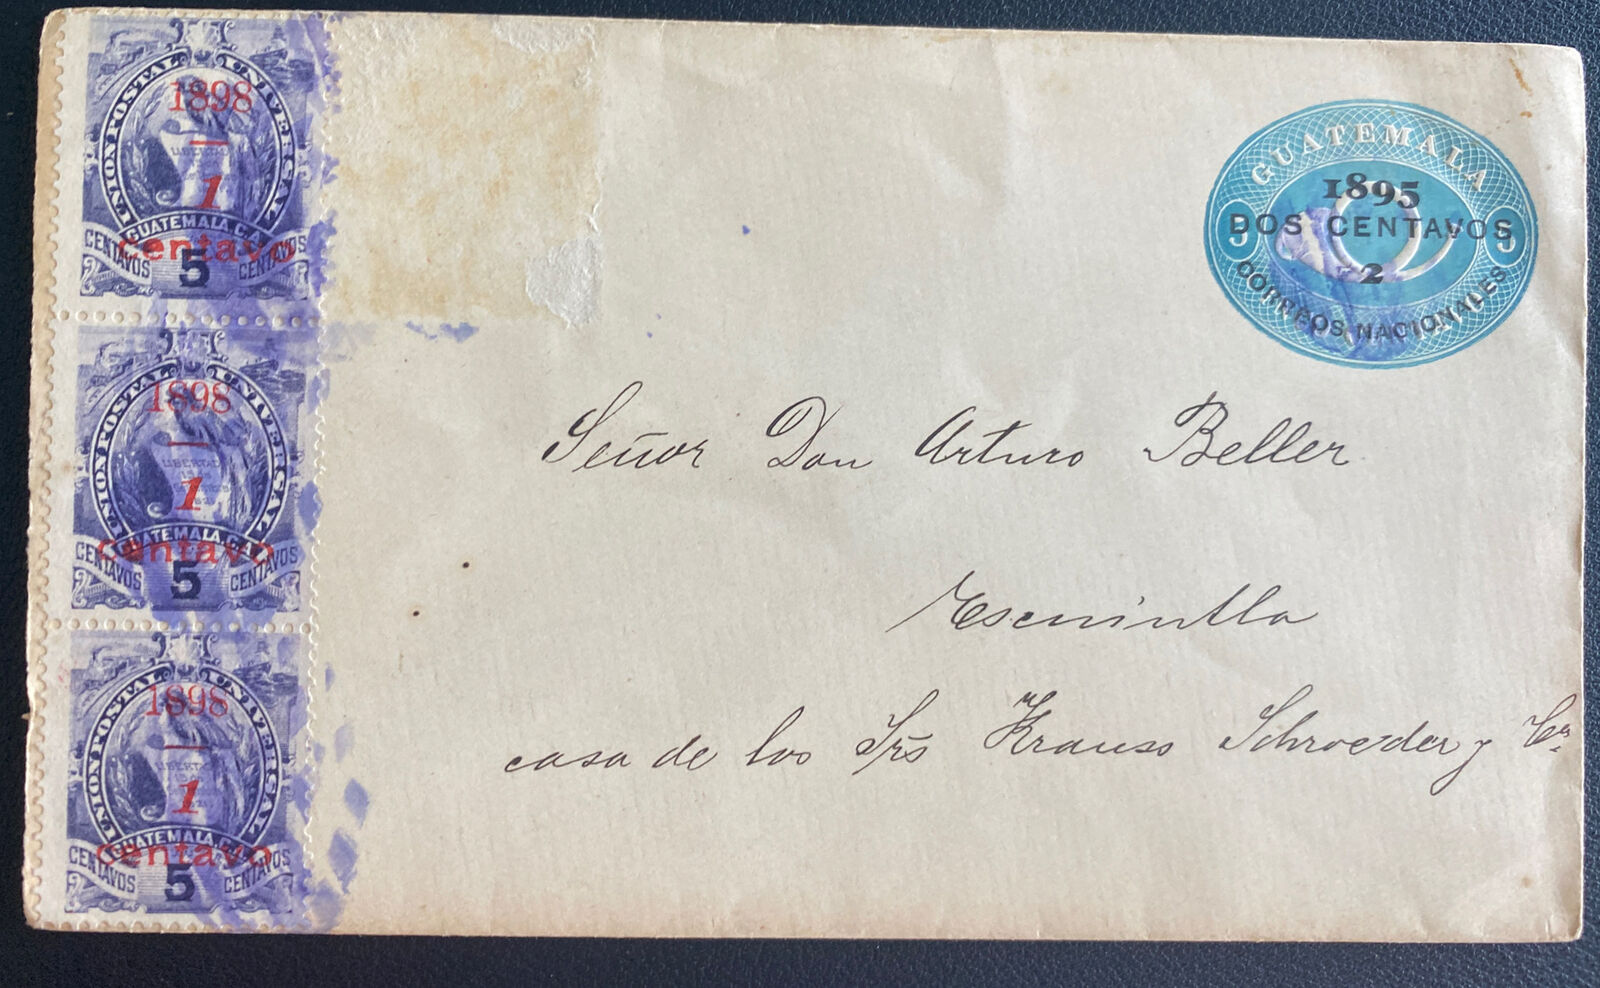 UNION POSTAL UNIVERSAL
1898
LIBERTAD
1
GUATEMALA, C.A.
Centavo
CENTAVOS 5 CENTAVOS
UNION POSTAL UNIVERSAL
1898
LIBERTAD
1
GUATEMALA, C.A.
Centavo
CENTAVOS 5 CENTAVOS
UNION POSTAL UNIVERSAL
1898
LIBERTAD
1
GUATEMALA, C.A.
Centavo
CENTAVOS 5 CENTAVOS
GUATEMALA
1895
DOS CENTAVOS
5 5
2
CORREOS NACIONALES
Señor Don Arturo Beller
Escuintla
casa de los Srs Krauso Schroeder y Ca.